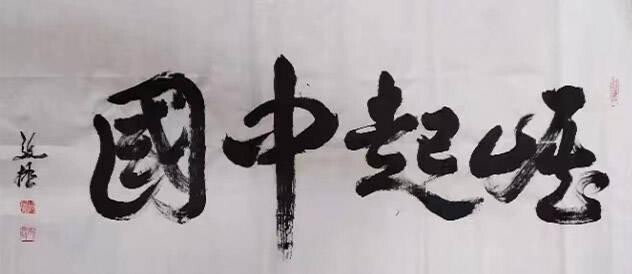 崛起中國